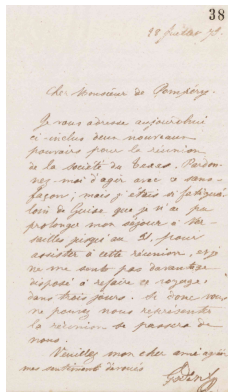 38
18 Juillet 78.
Cher Monsieur de Pompéry,
Je vous adresse aujourd'hui
ci-inclus deux nouveaux
pouvoirs pour la réunion
de la société du Texas. Pardon-
nez moi d'agir avec ce sans-
façon, mais j'étais si fatigué
lors de Guise que je n'ai pu
prolonger mon séjour à Ver-
sailles jusqu'au 21, pour
assister à cette réunion, et je
ne me sens pas davantage
disposé à refaire ce voyage
dans trois jours. Si donc vous
ne pouvez nous représenter
la réunion se passera de
nous.
Veuillez mon cher ami agréer
mes sentiments dévoués
Godin